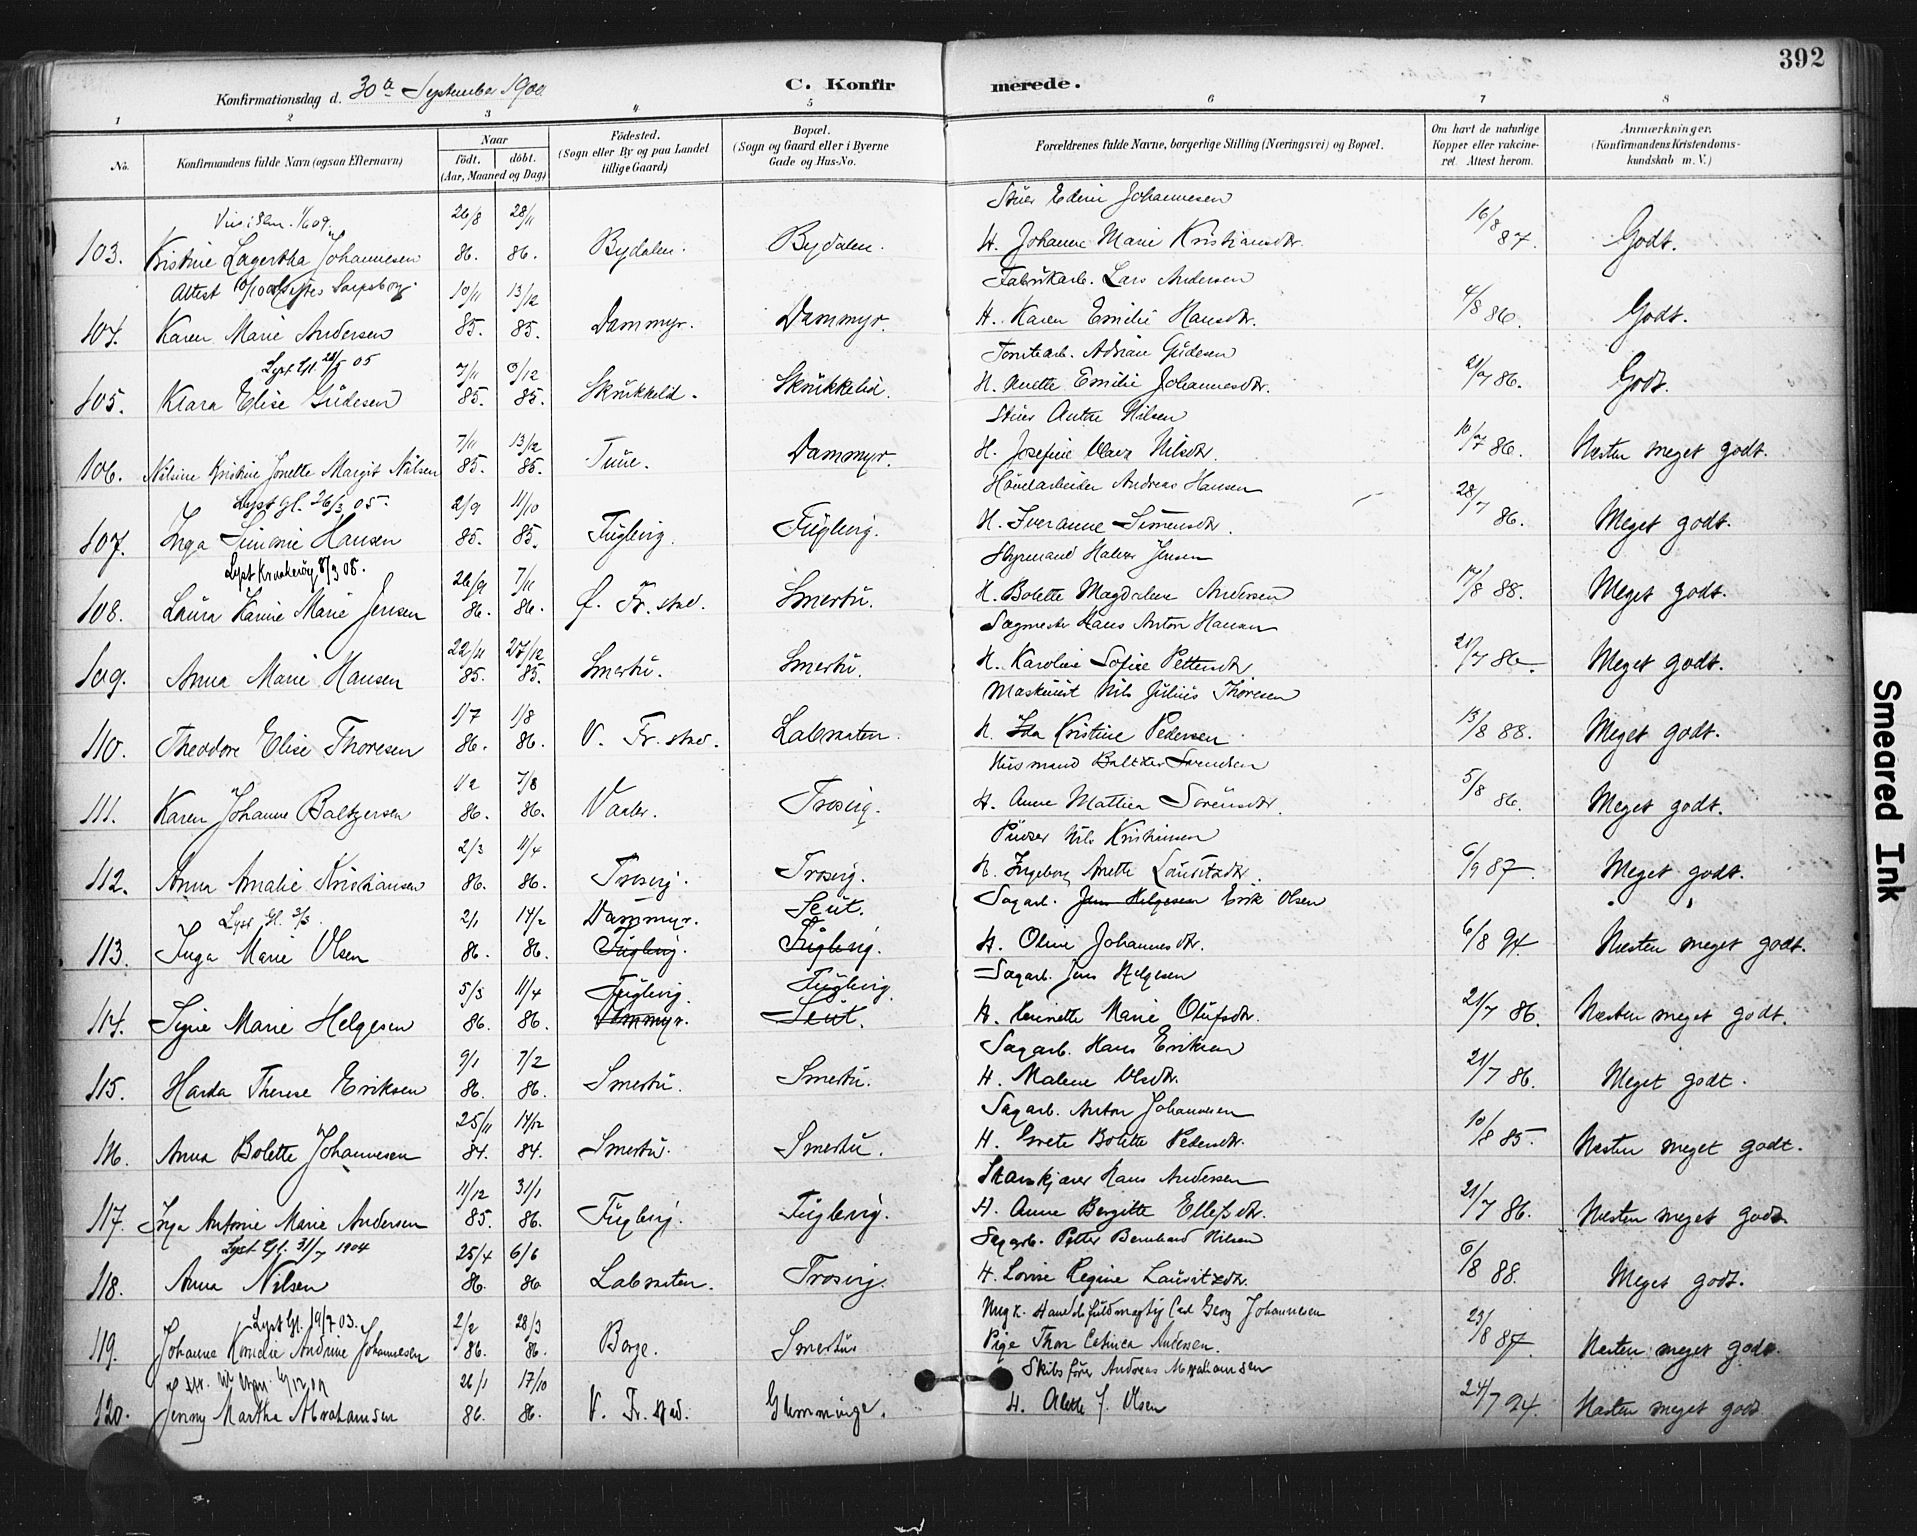 392
Konfirmationsdag d. 30te September 1900.
C. Konfirmerede.
1 2 3 4 5 6 7 8
No.
Konfirmandens fulde Navn (ogsaa Efternavn)
Naar
födt. döbt.
(Aar, Maaned og Dag)
Födested.
(Sogn eller By og paa Landet
tillige Gaard)
Bopæl.
(Sogn og Gaard eller i Byerne
Gade og Hus-No.
Forældrenes fulde Navne, borgerlige Stilling (Næringsvei) og Bopæl.
Om havt de naturlige
Kopper eller vaccine-
ret. Attest herom.
Anmærkninger.
(Konfirmandens Kristendoms-
kundskab m. V.)
26/8 28/11 Stuer Edvin Johannesen
103. Kristine Lagertha Johannesen 86. 86. Bydalen. Bydalen. H. Johanne Marie Kristiansdtr. 16/8 87. Godt.
Attest Sarpsborg. 10/11 13/12 Fabrikarb. Lars Andersen
104. Karen Marie Andersen 85. 85. Dammyr. Dammyr. H. Karen Emilie Hansdtr. 4/8 86. Godt.
Lyst Gl. 28/5 05 7/11 /12 Tomtearb. Adrian Gudesen
105. Klara Elise Gudesen 85. 85. Skrukkelid. Skrukkelid. H. Anette Emilie Johannesdtr. 21/7 86. Godt.
7/11 13/12 Stuer Anthe Nilsen
106. Nilsine Kristine Jonette Margit Nilsen 85. 85. Tune. Dammyr. H. Josefine Nilsdtr. 10/7 86. Næsten meget godt.
Lyst Gl. 26/3 05. 2/9 11/10 Høvelarbeider Andreas Hansen
107. Inga Simonie Hansen 85. 85. Fuglevig. Fuglevig. H. Iveranne Simensdtr. 28/7 86. Meget godt.
Lyst Kraakerøy 8/3 08. 26/9 7/11 Styrmand Halvor Jensen
108. Laura Karine Marie Jensen 86. 86. Ø. Fr.stad. Smertu. H. Bolette Magdalene Andersen 17/8 88. Meget godt.
22/11 27/12 Sagmester Hans Anton Hansen
109. Anna Marie Hansen 85. 85. Smertu. Smertu. H. Karoline Sofie Pettersdtr. 21/7 86 Meget godt.
1/7 1/8 Maskinist Nils Julius Thoresen
110. Theodore Elise Thoresen 86. 86. V. Fr.stad. Labraaten. H. Ida Kristine Pedersen 13/8 88. Meget godt.
1/2 7/3 Husmand Baltzer Svendsen
111. Karen Johanne Baltzersen 86. 86. Vaaler. Trosvig. H. Anne Mathea Sørensdtr. 5/8 86. Meget godt.
2/3 11/4 Pudser Nils Kristiansen
112. Anna Amalie Kristiansen 86. 86. Trosvig. Trosvig. H. Ingeborg Anette Lauritzdtr. 6/9 87. Meget godt.
Lyst Gl. 3/3. 2/1 14/2 Dammyr. Seut. Sagarb. Jens Helgesen Erik Olsen
113. Inga Marie Olsen 86. 86. Fuglevig. Fuglevig. H. Oline Johannesdtr. 6/8 94. Næsten meget godt.
5/3 11/4 Fuglevig. Fuglevig. Sagarb. Jens Helgesen
114. Signe Marie Helgesen 86. 86. Dammyr. Seut. H. Henriette Marie Olufsdtr. 21/7 86. Næsten meget godt.
9/1 7/2 Sagarb. Hans Eriksen
115. Harda Therese Eriksen 86. 86. Smertu. Smertu. H. Malene Olsdtr. 21/7 86. Meget godt.
25/11 14/12 Sagarb. Anton Johannesen
116. Anna Bolette Johannesen 84. 84. Smertu. Smertu. H. Grete Bolette Pedersdtr. 10/8 85. Næsten meget godt.
11/12 31/1 Hans Andersen
117. Inga Antonie Marie Andersen 85. 86. Fuglevig. Fuglevig. H. Anne Bergitte Ellefsdtr. 21/7 86. Næsten meget godt.
Lyst Gl. 31/7 1904 25/4 6/6 Sagarb. Petter Bernhard Nilsen
118. Anna Nilsen 86. 86 Labraaten. Trosvig. H. Lovise Regine Lauritzdtr. 6/8 88. Meget godt.
Lyst Gl. 19/7 03. 2/2 28/3 Ungk. Handelsfuldmægtig Carl Georg Johannesen
119. Johanne Kornelie Andrine Johannesen 86. 86. Borge. Smertu Pige Thora Andersen. 23/8 87. Næsten meget godt.
26/1 17/10 Skibsfører Andreas M Abrahamsen
120. Jenny Martha Abrahamsen 86. 86. V. Fr.stad. Glemminge. H. Alette J. Olsen 24/7 94. Næsten meget godt
Smeared Ink